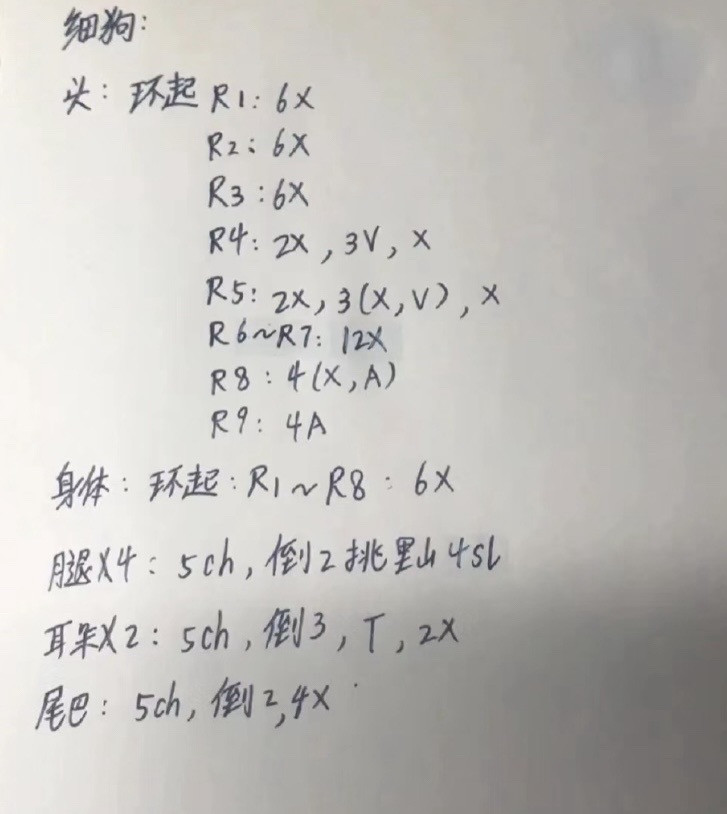 细狗:
头: 环起 R1: 6X
R2: 6X
R3: 6X
R4: 2X, 3V, X
R5: 2X, 3(X, V), X
R6~R7: 12X
R8: 4(X, A)
R9: 4A
身体: 环起: R1~R8: 6X
腿X4: 5ch, 倒2挑里山4sl
耳朵X2: 5ch, 倒3, T, 2X
尾巴: 5ch, 倒2, 4X